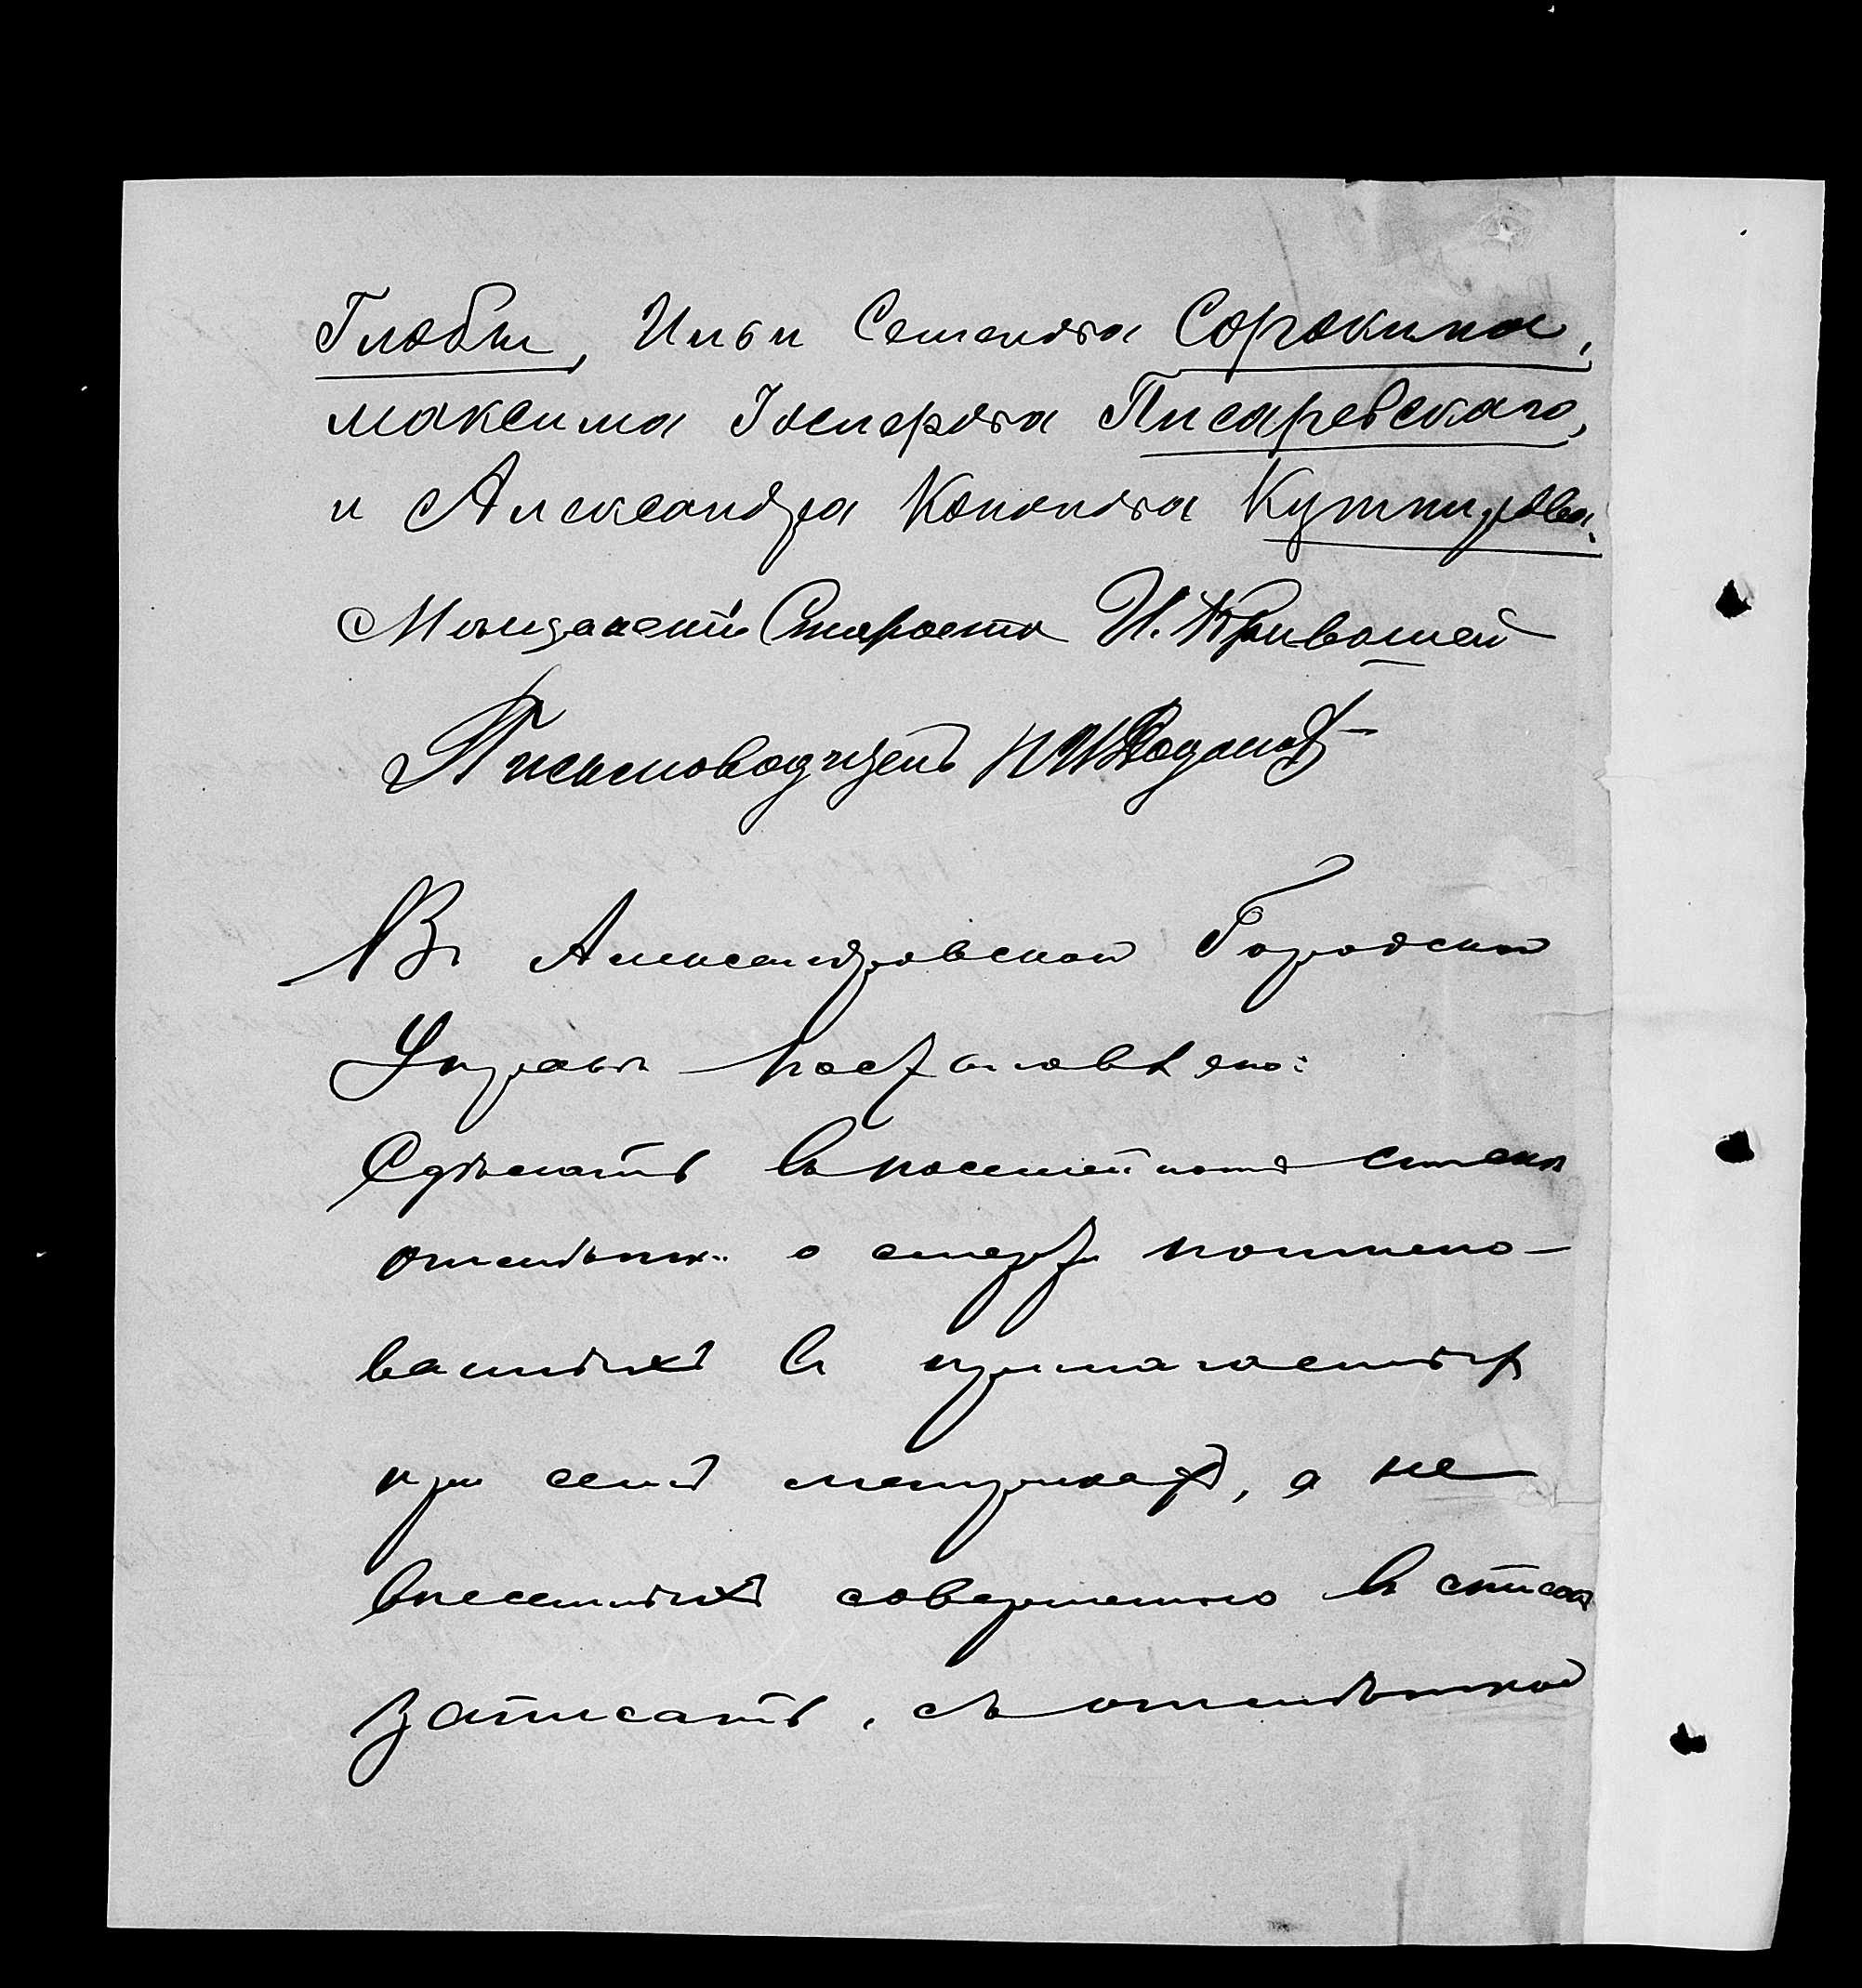 Глобы, Ильи Семенова Сорокина,
Максима Іосифова Писаревскаго,
и Александра Кононова
Мѣщанскій Староста И. Кривошей
Письмоводитель
Въ Александровской Городской
Управѣ постановлено:
Сдѣлать въ посемейномъ спискѣ
отмѣтки о смерти поимено-
ванныхъ въ прилагаемыхъ
при семъ метрикахъ, а не
внесенныхъ совершенно въ список
записать, съ отмѣткой